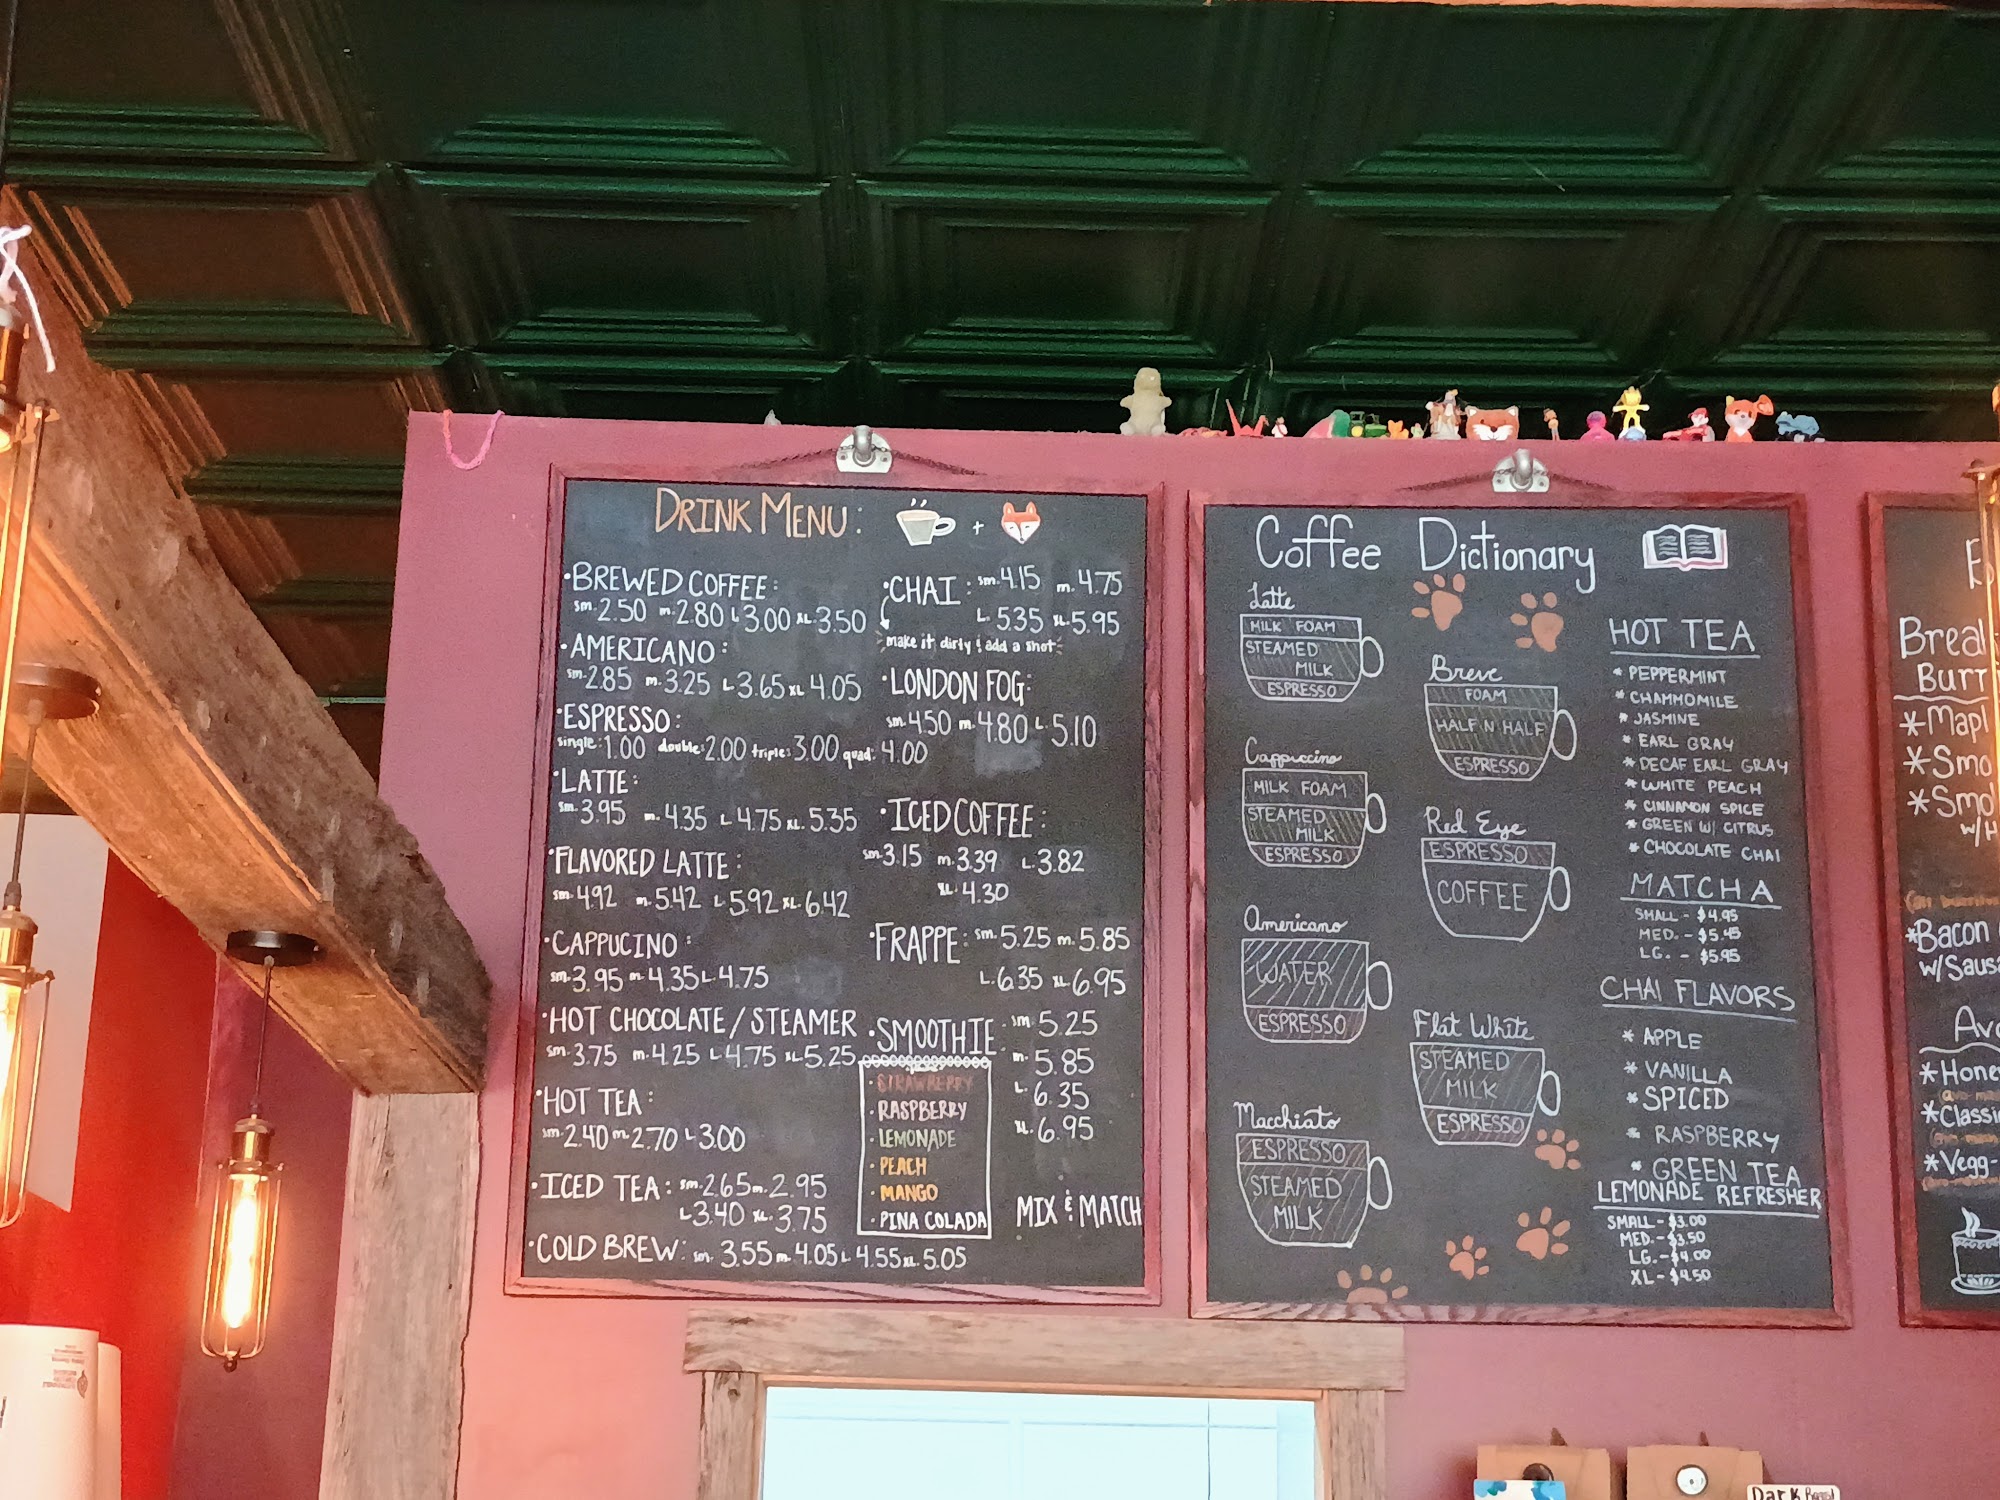 DRINK MENU:
+
·BREWED COFFEE:
sm. 2.50 m. 2.80 L 3.00 XL. 3.50
·AMERICANO:
sm. 2.85 m. 3.25 L 3.65 XL 4.05
·ESPRESSO:
single: 1.00 double: 2.00 triple: 3.00 quad: 4.00
·LATTE:
sm. 3.95 m. 4.35 L 4.75 XL. 5.35
·FLAVORED LATTE:
sm. 4.92 m. 5.42 L 5.92 XL. 6.42
·CAPPUCINO:
sm. 3.95 m. 4.35 L 4.75
·HOT CHOCOLATE/STEAMER
sm. 3.75 m. 4.25 L 4.75 XL 5.25
·HOT TEA:
sm. 2.40 m. 2.70 L 3.00
·ICED TEA: sm. 2.65 m. 2.95
L 3.40 XL. 3.75
·COLD BREW: sm. 3.55 m. 4.05 L 4.55 XL. 5.05
·CHAI: sm. 4.15 m. 4.75
L. 5.35 XL. 5.95
make it dirty & add a shot
·LONDON FOG:
sm. 4.50 m. 4.80 L. 5.10
·ICED COFFEE:
sm. 3.15 m. 3.39 L. 3.82
XL. 4.30
·FRAPPE: sm. 5.25 m. 5.85
L. 6.35 XL. 6.95
·SMOOTHIE: sm. 5.25
m. 5.85
L. 6.35
XL. 6.95
· STRAWBERRY
· RASPBERRY
· LEMONADE
· PEACH
· MANGO
· PINA COLADA
MIX & MATCH
Coffee Dictionary
Latte
MILK FOAM
STEAMED
MILK
ESPRESSO
Cappuccino
MILK FOAM
STEAMED
MILK
ESPRESSO
Americano
WATER
ESPRESSO
Macchiato
ESPRESSO
STEAMED
MILK
Breve
FOAM
HALF N HALF
ESPRESSO
Red Eye
ESPRESSO
COFFEE
Flat White
STEAMED
MILK
ESPRESSO
HOT TEA
* PEPPERMINT
* CHAMMOMILE
* JASMINE
* EARL GRAY
* DECAF EARL GRAY
* WHITE PEACH
* CINNAMON SPICE
* GREEN W/ CITRUS
* CHOCOLATE CHAI
MATCHA
SMALL - $4.95
MED. - $5.45
LG. - $5.95
CHAI FLAVORS
* APPLE
* VANILLA
* SPICED
* RASPBERRY
* GREEN TEA
LEMONADE REFRESHER
SMALL - $3.00
MED. - $3.50
LG. - $4.00
XL - $4.50
Brea
BURT
*Mapl
*Smo
*Smo
w/H
*Bacon
w/Saus
Avo
*Hone
*Classi
*Vegg-
Dark Roast